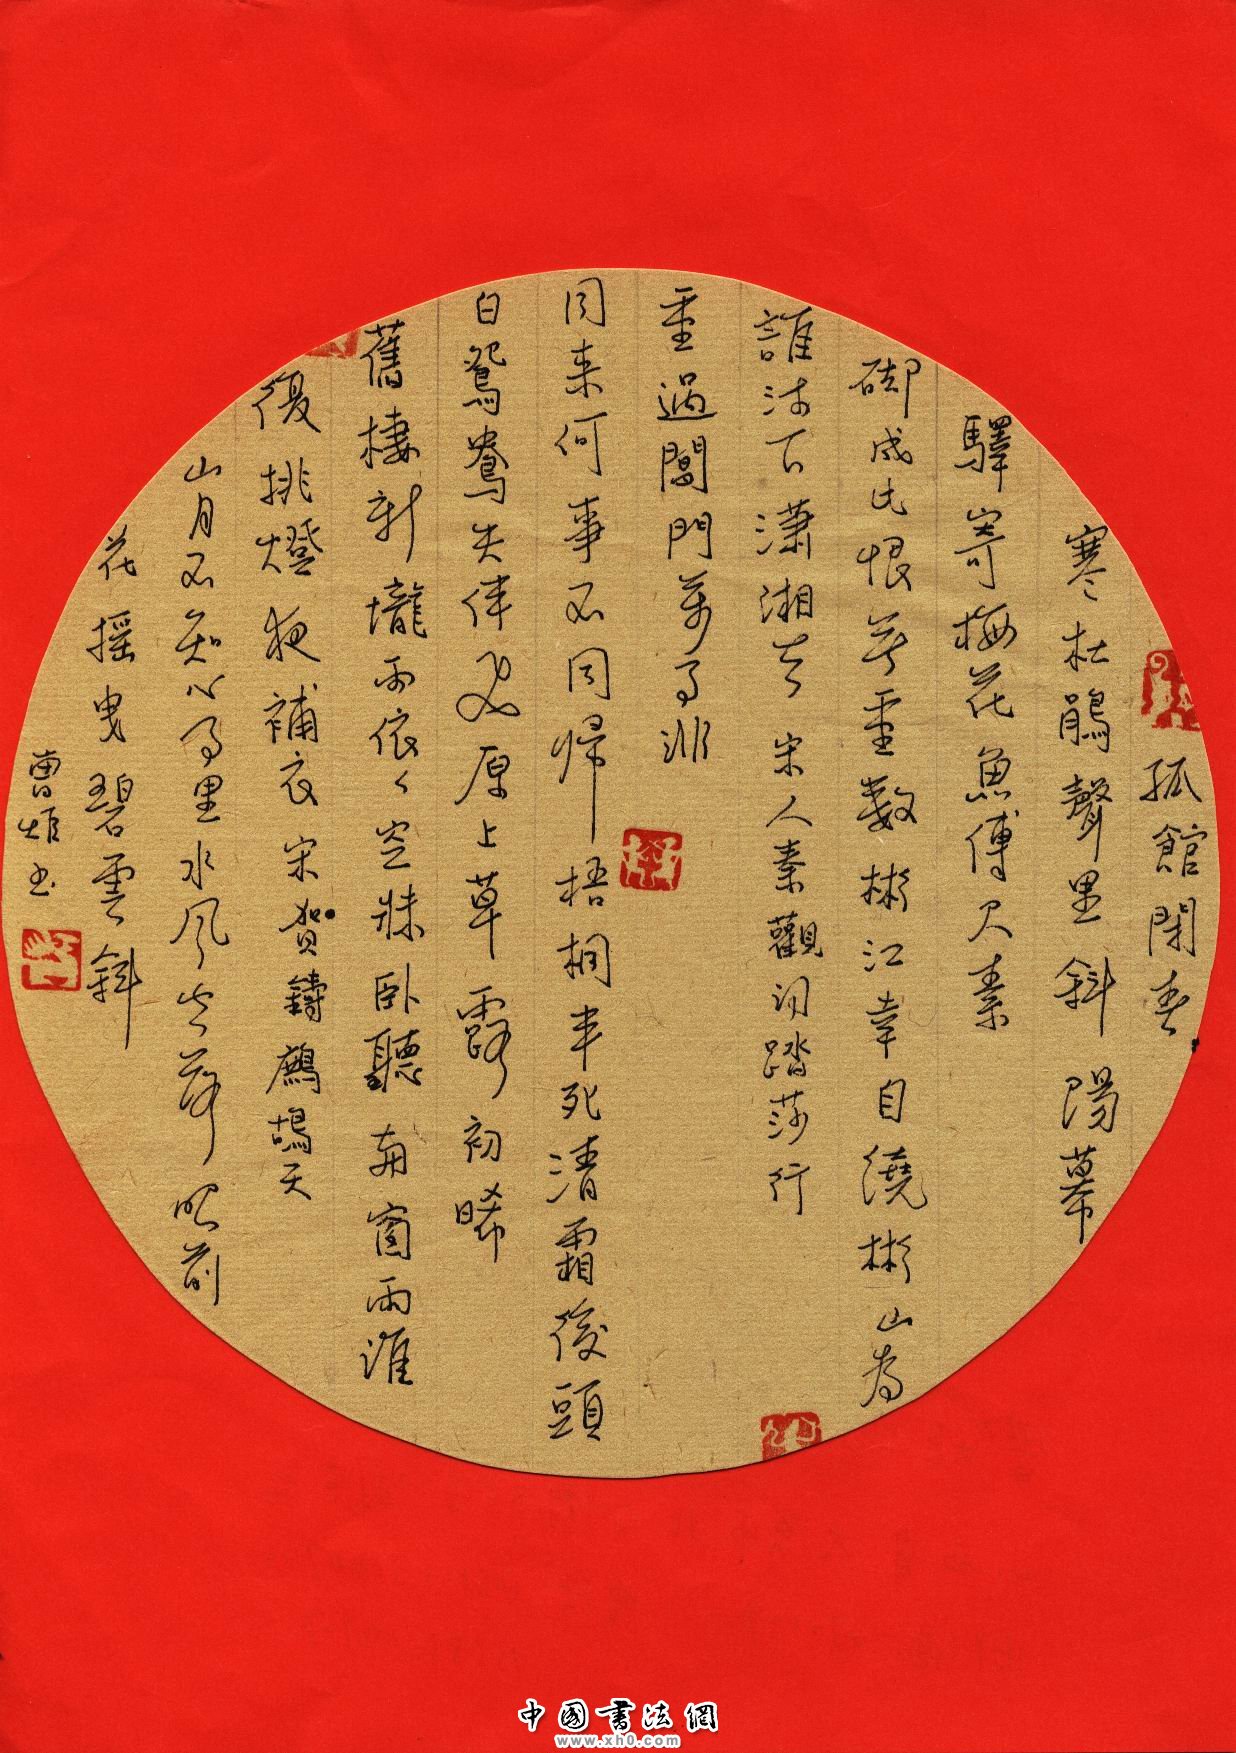 孤館閉春
寒杜鵑聲里斜陽暮
驛寄梅花魚傅尺素
砌成此恨無重數郴江幸自繞郴山為
誰流下瀟湘去 宋人秦觀詞踏莎行
重過閶門萬事非
同来何事不同歸梧桐半死清霜後頭
白鴛鴦失伴飛原上草露初晞
舊棲新壠兩依々空牀卧聽南窗雨誰
復挑燈夜補衣宋賀鑄鷓鴣天
山月不知心事里水風空落眼前
花摇曳碧雲斜
曹雄书
中国書法網
www.xh0.com